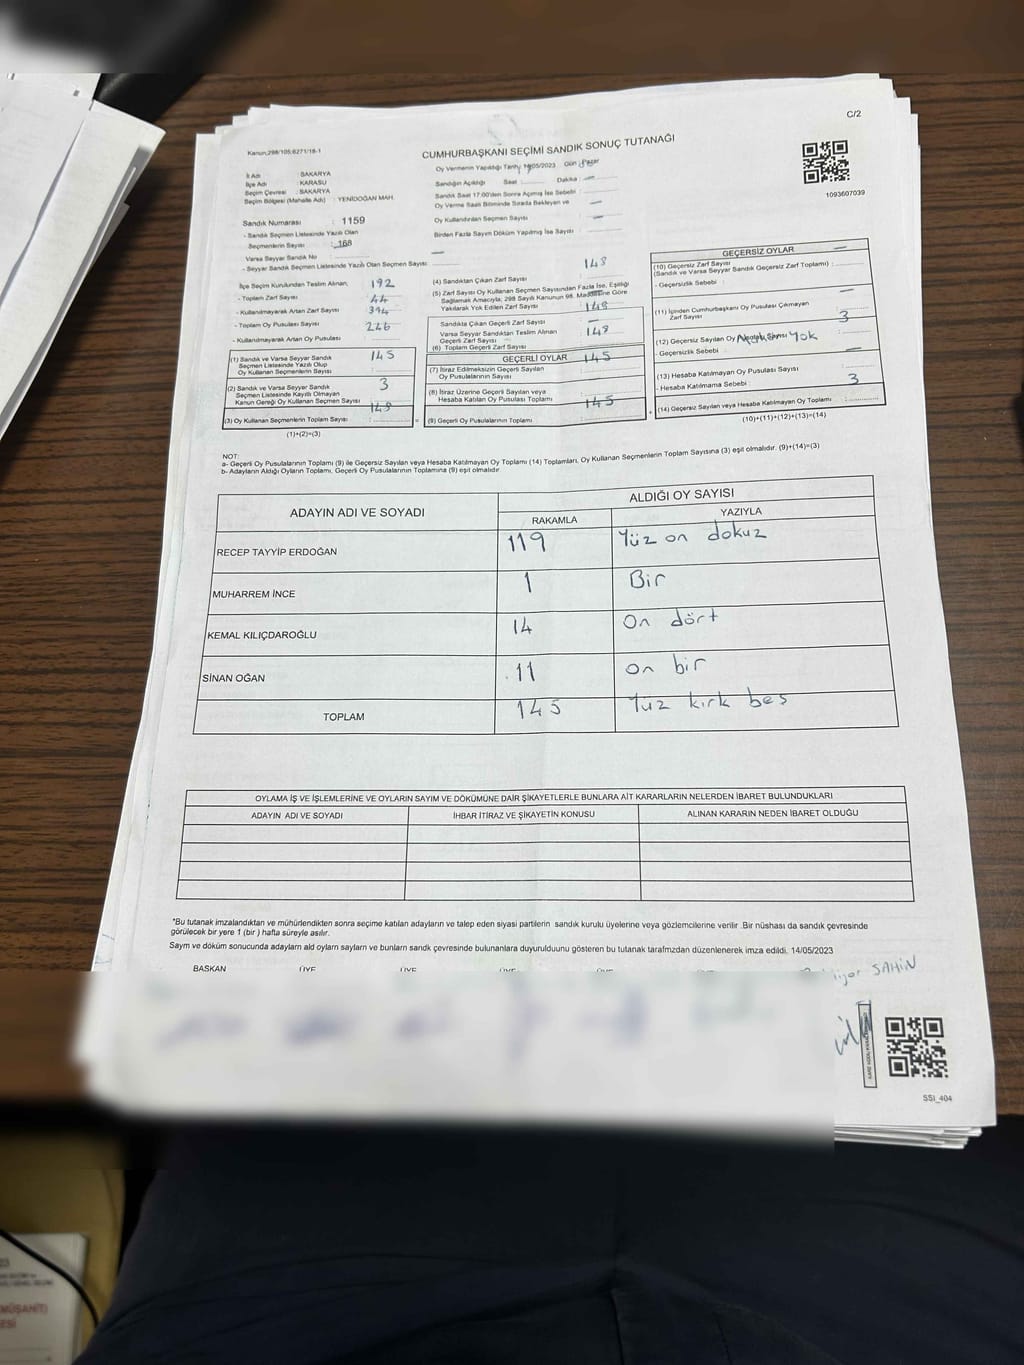 C/2
Kanun;298/105;6271/18-1
CUMHURBAŞKANI SEÇİMİ SANDIK SONUÇ TUTANAĞI
İl Adı : SAKARYA
İlçe Adı : KARASU
Seçim Çevresi : SAKARYA
Seçim Bölgesi (Mahalle Adı) : YENİDOĞAN MAH.
Sandık Numarası : 1159
- Sandık Seçmen Listesinde Yazılı Olan
Seçmenlerin Sayısı : 168
Varsa Seyyar Sandık No
- Seyyar Sandık Seçmen Listesinde Yazılı Olan Seçmen Sayısı : —
Oy Vermenin Yapıldığı Tarih; 14/05/2023 Gün : Pazar
Sandığın Açıldığı Saat Dakika : —
Sandık Saat 17:00'den Sonra Açılmış İse Sebebi :
Oy Verme Saati Bitiminde Sırada Bekleyen ve —
Oy Kullandırılan Seçmen Sayısı : —
Birden Fazla Sayım Döküm Yapılmış İse Sayısı : —
1093607039
İlçe Seçim Kurulundan Teslim Alınan;
- Toplam Zarf Sayısı : 192
- Kullanılmayarak Artan Zarf Sayısı : 44
- Toplam Oy Pusulası Sayısı : 394
- Kullanılmayarak Artan Oy Pusulası : 246
(1) Sandık ve Varsa Seyyar Sandık
Seçmen Listesinde Yazılı Olup
Oy Kullanan Seçmenlerin Sayısı : 145
(2) Sandık ve Varsa Seyyar Sandık
Seçmen Listesinde Kayıtlı Olmayan
Kanun Gereği Oy Kullanan Seçmen Sayısı : 3
(3) Oy Kullanan Seçmenlerin Toplam Sayısı : 148
(1)+(2)=(3)
(4) Sandıktan Çıkan Zarf Sayısı : 148
(5) Zarf Sayısı Oy Kullanan Seçmen Sayısından Fazla İse, Eşitliği
Sağlamak Amacıyla, 298 Sayılı Kanunun 98. Maddesine Göre
Yakılarak Yok Edilen Zarf Sayısı : —
Sandıkta Çıkan Geçerli Zarf Sayısı : 148
Varsa Seyyar Sandıktan Teslim Alınan
Geçerli Zarf Sayısı : —
(6) Toplam Geçerli Zarf Sayısı : 148
GEÇERLİ OYLAR
(7) İtiraz Edilmeksizin Geçerli Sayılan
Oy Pusulalarının Sayısı : 145
(8) İtiraz Üzerine Geçerli Sayılan veya
Hesaba Katılan Oy Pusulası Toplamı :
(9) Geçerli Oy Pusulalarının Toplamı : 145
GEÇERSİZ OYLAR
(10) Geçersiz Zarf Sayısı
(Sandık ve Varsa Seyyar Sandık Geçersiz Zarf Toplamı) : —
- Geçersizlik Sebebi :
(11) İçinden Cumhurbaşkanı Oy Pusulası Çıkmayan
Zarf Sayısı : —
(12) Geçersiz Sayılan Oy Pusulası Sayısı : 3
- Geçersizlik Sebebi : Yok
(13) Hesaba Katılmayan Oy Pusulası Sayısı : —
- Hesaba Katılmama Sebebi :
(14) Geçersiz Sayılan veya Hesaba Katılmayan Oy Toplamı : 3
(10)+(11)+(12)+(13)=(14)
NOT:
a- Geçerli Oy Pusulalarının Toplamı (9) ile Geçersiz Sayılan veya Hesaba Katılmayan Oy Toplamı (14) Toplamları, Oy Kullanan Seçmenlerin Toplam Sayısına (3) eşit olmalıdır. (9)+(14)=(3)
b- Adayların Aldığı Oyların Toplamı, Geçerli Oy Pusulalarının Toplamına (9) eşit olmalıdır
ADAYIN ADI VE SOYADI ALDIĞI OY SAYISI
RAKAMLA YAZIYLA
RECEP TAYYİP ERDOĞAN 119 Yüz on dokuz
MUHARREM İNCE 1 Bir
KEMAL KILIÇDAROĞLU 14 On dört
SİNAN OĞAN 11 on bir
TOPLAM 145 Yüz kırk beş
OYLAMA İŞ VE İŞLEMLERİNE VE OYLARIN SAYIM VE DÖKÜMÜNE DAİR ŞİKAYETLERLE BUNLARA AİT KARARLARIN NELERDEN İBARET BULUNDUKLARI
ADAYIN ADI VE SOYADI İHBAR İTİRAZ VE ŞİKAYETİN KONUSU ALINAN KARARIN NEDEN İBARET OLDUĞU
*Bu tutanak imzalandıktan ve mühürlendikten sonra seçime katılan adayların ve talep eden siyasi partilerin sandık kurulu üyelerine veya gözlemcilerine verilir .Bir nüshası da sandık çevresinde
görülecek bir yere 1 (bir ) hafta süreyle asılır.
Saym ve döküm sonucunda adaylarn ald oylarn saylarn ve bunlarn sandk çevresinde bulunanlara duyurulduunu gösteren bu tutanak tarafmzdan düzenlenerek imza edildi. 14/05/2023
BAŞKAN ÜYE ÜYE ÜYE ÜYE
ŞAHİN
SSI_404